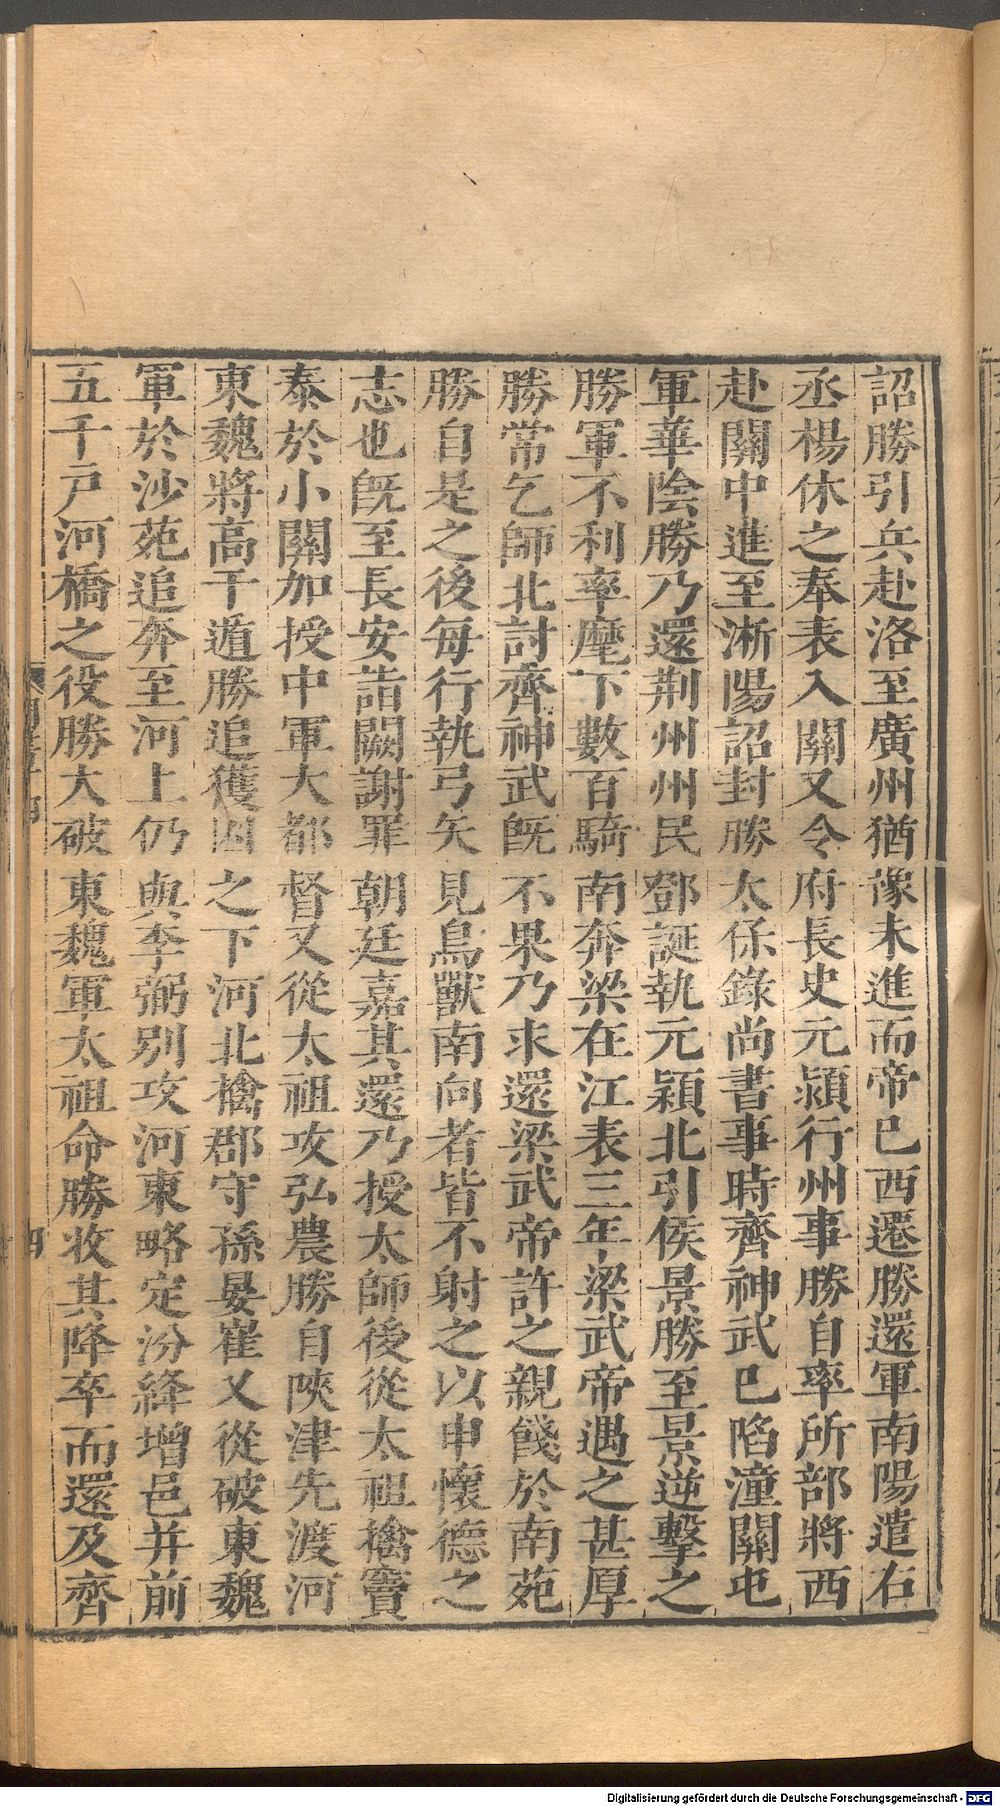 詔勝引兵赴洛至廣州猶豫未進而帝已西遷勝還軍南陽遣右
丞楊休之奉表入關又令府長史元潁行州事勝自率所部將西
赴關中進至淅陽詔封勝太保錄尚書事時齊神武已陷潼關屯
軍華陰勝乃還荆州州民鄧誕執元潁北引侯景勝至景逆擊之
勝軍不利率麾下數百騎南奔梁在江表三年梁武帝遇之甚厚
勝常乞師北討齊神武旣不果乃求還梁武帝許之親餞於南苑
勝自是之後每行執弓矢見鳥獸南向者皆不射之以申懷德之
志也旣至長安詣闕謝罪朝廷嘉其還乃授太師後從太祖擒竇
泰於小關加授中軍大都督又從太祖攻弘農勝自陝津先渡河
東魏將高干遁勝追獲囚之下河北擒郡守孫晏崔又從破東魏
軍於沙苑追奔至河上仍與李弼別攻河東略定汾絳增邑并前
五千戸河橋之役勝大破東魏軍太祖命勝收其降卒而還及齊
四
Digitalisierung gefördert durch die Deutsche Forschungsgemeinschaft - DFG